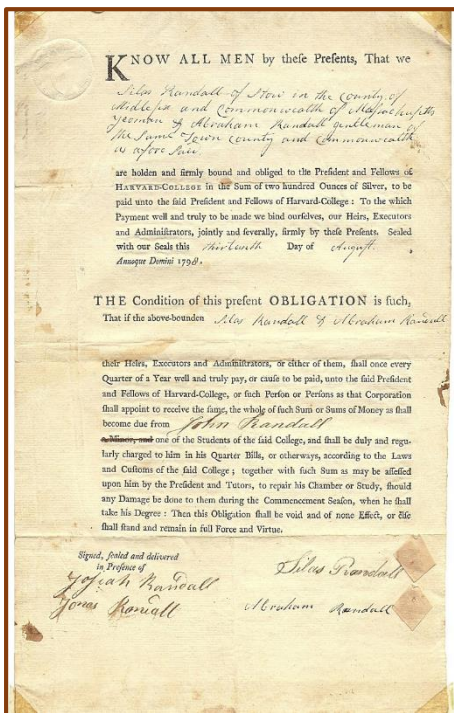 KNOW ALL MEN by theſe Preſents, That we
Silas Randall of Stow in the County of
Middleſex and Commonwealth of Maſsachuſetts
yeoman & Abraham Randall gentleman of
the Same Town County and Commonwealth
as afore Said
are holden and firmly bound and obliged to the Preſident and Fellows of
HARVARD-COLLEGE in the Sum of two hundred Ounces of Silver, to be
paid unto the ſaid Preſident and Fellows of Harvard-College : To the which
Payment well and truly to be made we bind ourſelves, our Heirs, Executors
and Adminiſtrators, jointly and ſeverally, firmly by theſe Preſents. Sealed
with our Seals this thirteenth Day of Auguſt.
Annoque Domini 1798.
THE Condition of this preſent OBLIGATION is ſuch,
That if the above-bounden Silas Randall & Abraham Randall
their Heirs, Executors and Adminiſtrators, or either of them, ſhall once every
Quarter of a Year well and truly pay, or cauſe to be paid, unto the ſaid Preſident
and Fellows of Harvard-College, or ſuch Perſon or Perſons as that Corporation
ſhall appoint to receive the ſame, the whole of ſuch Sum or Sums of Money as ſhall
become due from John Randall
a Minor, and one of the Students of the ſaid College, and ſhall be duly and regu-
larly charged to him in his Quarter Bills, or otherways, according to the Laws
and Cuſtoms of the ſaid College ; together with ſuch Sum as may be aſſeſſed
upon him by the Preſident and Tutors, to repair his Chamber or Study, ſhould
any Damage be done to them during the Commencement Seaſon, when he ſhall
take his Degree : Then this Obligation ſhall be void and of none Effect, or elſe
ſhall ſtand and remain in full Force and Virtue.
Signed, ſealed and delivered
in Preſence of
Joſiah Randall
Jonas Randall
Silas Randall
Abraham Randall